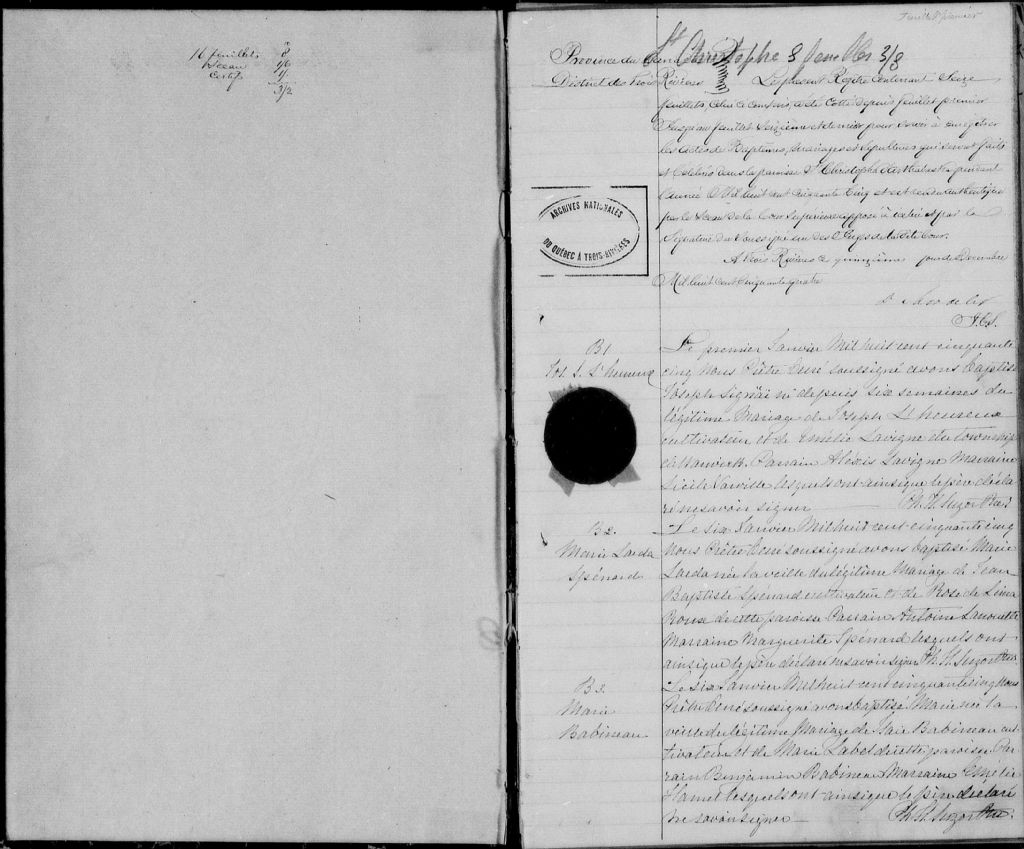 16 feuillets 2
Sceau 1/6
Certif 1/.
3/2
Feuillet premier
St Christophe 8 fenelles 3/8
Province du Canada
District des Trois Rivières
Le présent Régitre Contenant Seize
feuillets, Celui Ci Compris, a été Cotté depuis feuillet premier
Jusqu'au feuillet Seizième et dernier pour servir à enrégitrer
les actes de Baptèmes, Mariages et Sépultures qui seront faits
et Célébrés dans la paroisse St Christophe d'Arthabaska pendant
l'année Mil huit cent Cinquante Cinq et est rendu authentique
par le Sceau de la Cour Supérieure apposé à icelui et par la
Signature du Soussigné un des Juges de la dite Cour.
A Trois Rivières Ce quinzième jour de Décembre
Mil huit cent Cinquante quatre
J.C.S.
ARCHIVES NATIONALES
DU QUÉBEC À TROIS-RIVIÈRES
B1
Jos. S. L'heureux
Le premier Janvier Mil huit cent cinquante
cinq Nous Prêtre Curé soussigné avons baptisé
Joseph né depuis six semaines du
légitime Mariage de Joseph L'heureux
cultivateur et de Emélie Lavigne du township
de Warwick. Parrain Alexis Lavigne Marraine
lesquels ont ainsi que le père décla
ré ne savoir signer Ph. H. Suzor Ptre
B2.
Marie Sarda
Spénard
Le six Janvier Mil huit cent cinquante cinq
Nous Prêtre Curé soussigné avons baptisé Marie
Sarda née la veille du légitime Mariage de Jean
Baptiste Spénard cultivateur et de Rose de Lima
de cette paroisse Parrain Antoine
Marraine Marguerite Spénard lesquels ont
ainsi que le père déclaré ne savoir signer Ph. H. Suzor Ptre
B3.
Marie
Babineau
Le six Janvier Mil huit cent cinquante cinq Nous
Prêtre Curé soussigné avons baptisé Marie née la
veille du légitime Mariage de Babineau cul
tivateur et de Marie de cette paroisse Par
rain Benjamin Babineau Marraine Emélie
Hamel lesquels ont ainsi que le père déclaré
ne savoir signer Ph. H. Suzor Ptre.